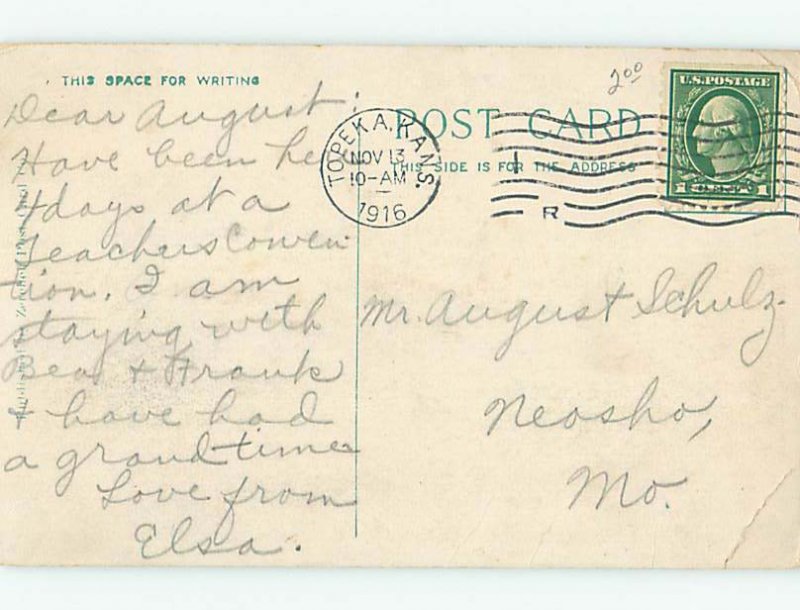 THIS SPACE FOR WRITING
Dear August:
Have been here
4 days at a
Teachers Conven
tion. I am
staying with
Bea & Frank
& have had
a grand time
Love from
Elsa.
TOPEKA, KANS.
NOV 13
10-AM
1916
R
2.00
POST CARD
THIS SIDE IS FOR THE ADDRESS
U.S. POSTAGE
1 1
Mr. August Schulz
Neosho,
Mo.